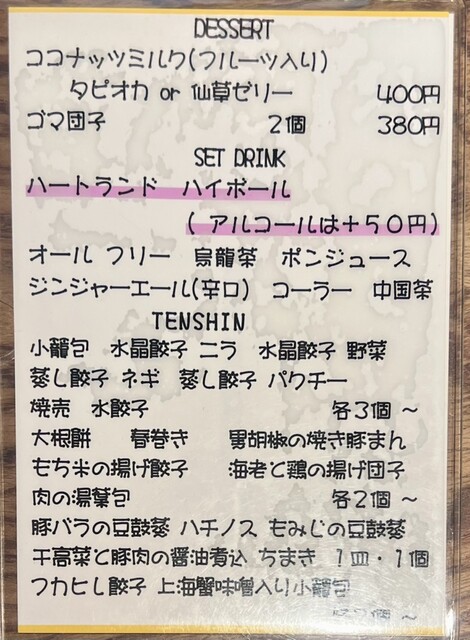 DESSERT
ココナッツミルク(フルーツ入り)
タピオカ or 仙草ゼリー 400円
ゴマ団子 2個 380円
SET DRINK
ハートランド ハイボール
(アルコールは+50円)
オール フリー 烏龍茶 ポンジュース
ジンジャーエール(辛口) コーラー 中国茶
TENSHIN
小籠包 水晶餃子 ニラ 水晶餃子 野菜
蒸し餃子 ネギ 蒸し餃子 パクチー
焼売 水餃子 各3個 ~
大根餅 春巻き 黒胡椒の焼き豚まん
もち米の揚げ餃子 海老と鶏の揚げ団子
肉の湯葉包 各2個 ~
豚バラの豆鼓蒸 ハチノス もみじの豆鼓蒸
干高菜と豚肉の醤油煮込 ちまき 1皿・1個
フカヒレ餃子 上海蟹味噌入り小籠包
個 ~